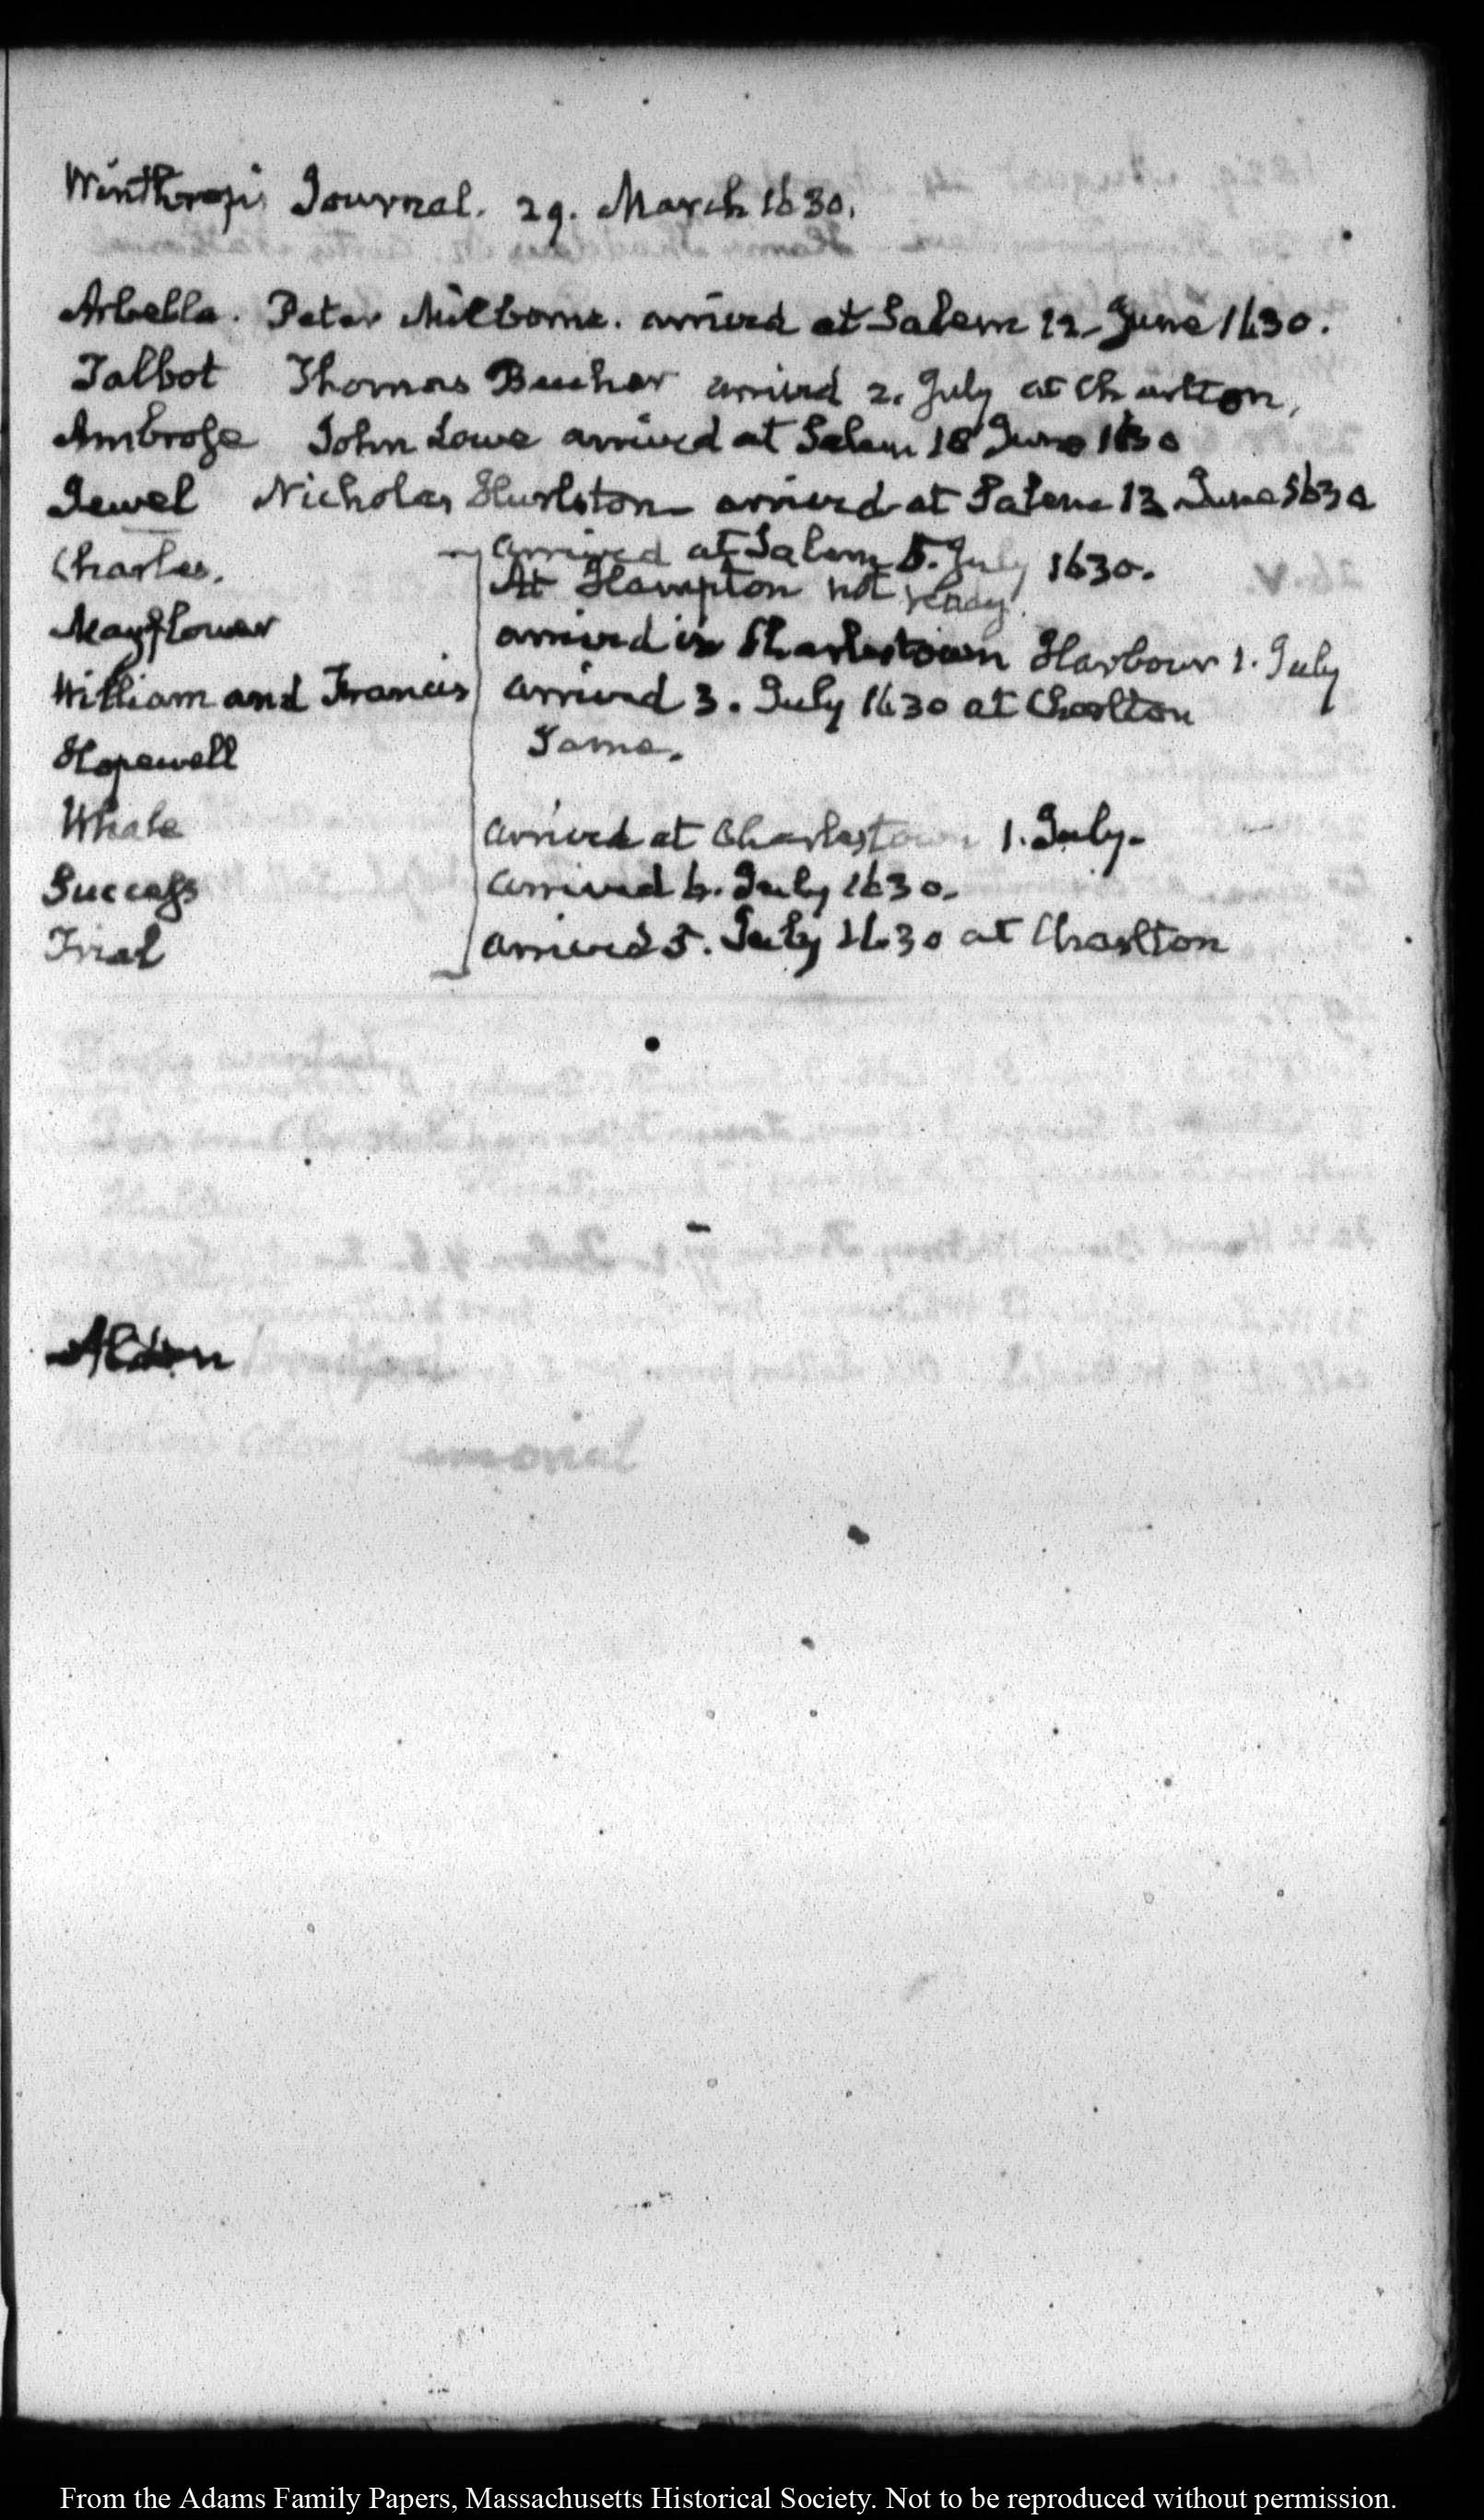 Winthrop's Journal. 29. March 1630.
Arbella. Peter Milborne. arrived at Salem 12 June 1630.
Talbot Thomas Beecher arrived 2. July at Charlton,
Ambrose John Lowe arrived at Salem 18 June 1630
Jewel Nicholas Hurlston arrived at Salem 13 June 1630
arrived at Salem 5. July 1630.
Charles. At Hampton not ready.
Mayflower arrived in Charlestown Harbour 1. July
William and Francis arrived 3. July 1630 at Charlton
Hopewell Same.
Whale arrived at Charlestown 1. July.
Success arrived 6. July 1630.
Trial arrived 5. July 1630 at Charlton
Alden
Colony
From the Adams Family Papers, Massachusetts Historical Society. Not to be reproduced without permission.